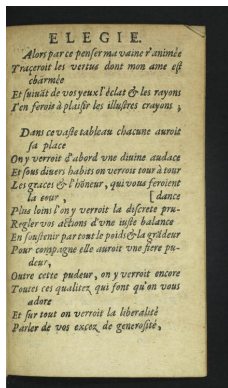 ELEGIE.
Alors par ce penser ma vaine r'animée
Traceroit les vertus dont mon ame est
charmée
Et suiuãt de vos yeux l'éclat & les rayons
I'en ferois à plaisir les illustres crayons ;
Dans ce vaste tableau chacune auroit
sa place
On y verroit d'abord vne diuine audace
Et sous diuers habits on verroit tour à tour
Les graces & l'hõneur, qui vous feroient
la cour, [dance
Plus loins l'on y verroit la discrete pru-
Regler vos actions d'vne iuste balance
En soustenir par tout le poids & la grãdeur
Pour compagne elle auroit vne fiere pu-
deur,
Outre cette pudeur, on y verroit encore
Toutes ces qualitez qui font qu'on vous
adore
Et sur tout on verroit la liberalité
Parler de vos excez de generosité,